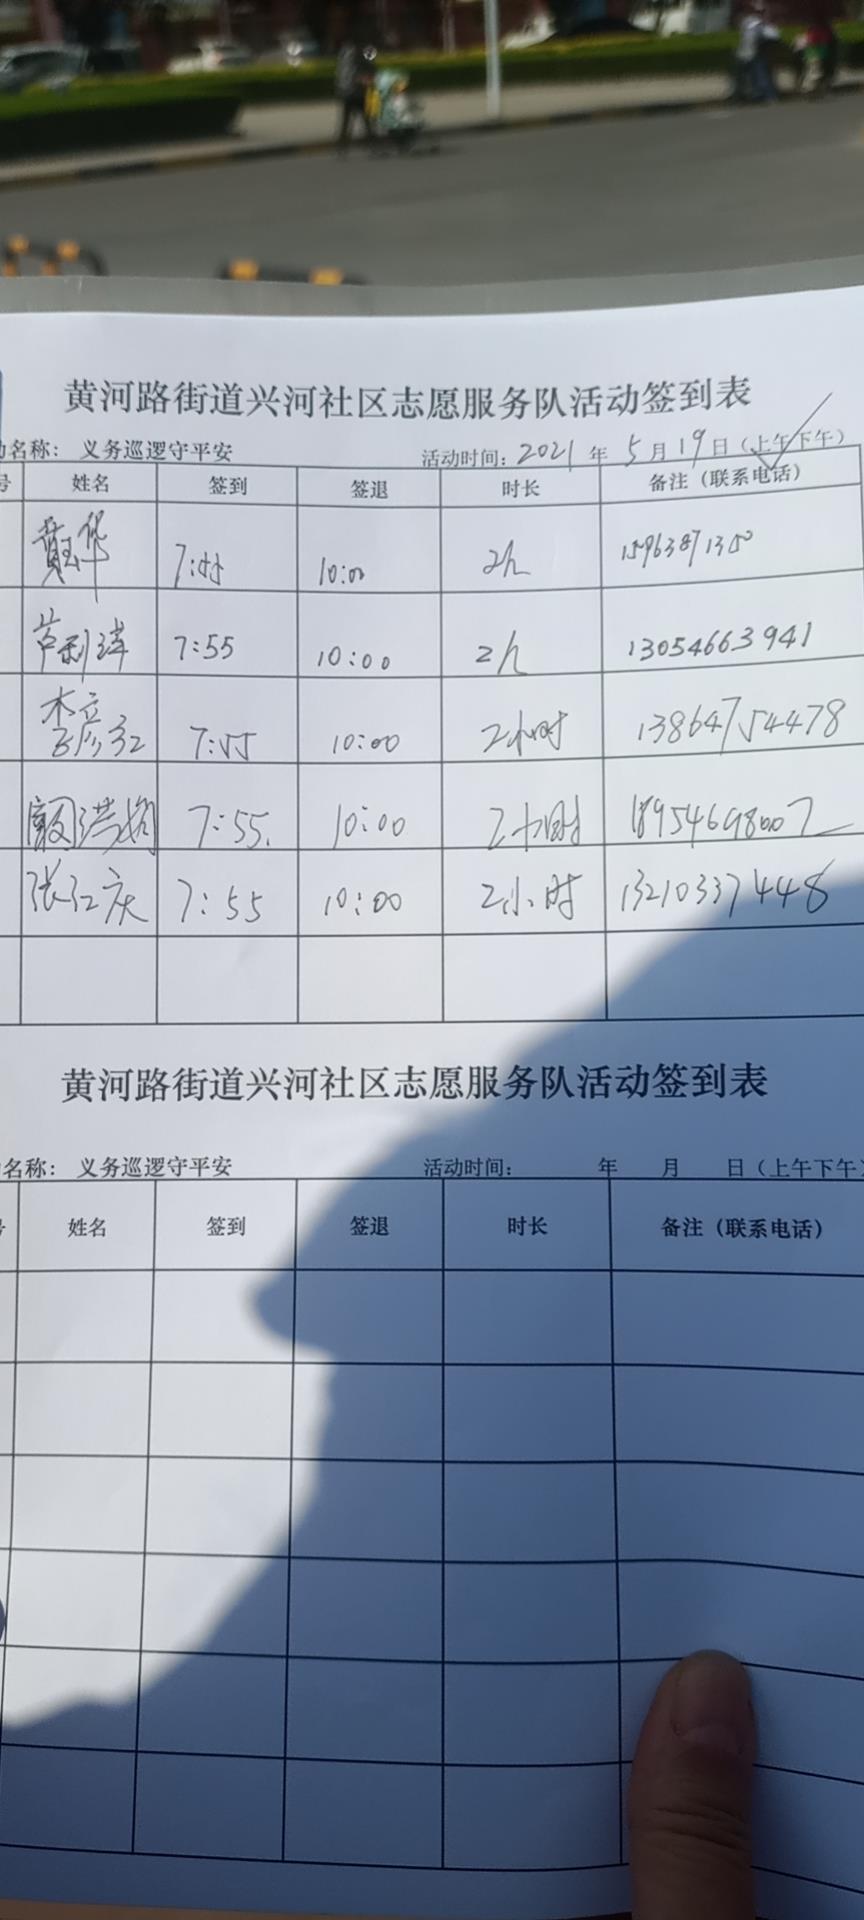 黄河路街道兴河社区志愿服务队活动签到表
动名称： 义务巡逻守平安 活动时间：2021 年 5 月 19 日（上午下午）
号 姓名 签到 签退 时长 备注（联系电话）
黄玉华 7:55 10:00 2h 15963871350
芦利萍 7:55 10:00 2h 13054663941
李彦红 7:55 10:00 2小时 13864754478
7:55. 10:00 2小时 18954698007
张红庆 7:55 10:00 2小时 13210337448
黄河路街道兴河社区志愿服务队活动签到表
名称： 义务巡逻守平安 活动时间： 年 月 日（上午下午）
号 姓名 签到 签退 时长 备注（联系电话）